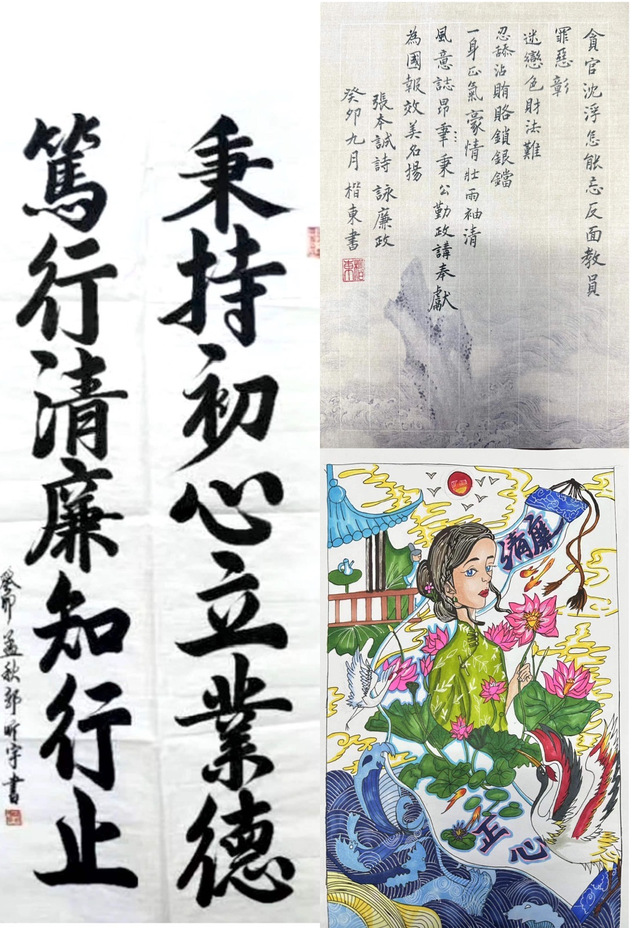 秉持初心立業德
篤行清廉知行止
癸卯孟秋郭昕宇書
貪官沈浮怎能忘反面教員
罪惡彰
迷戀色財法難
忍舔沾賄賂鎖銀鐺
一身正氣豪情壯兩袖清
風意誌昂秉公勤政講奉獻
為國報效美名揚
張本誠詩詠廉政
癸卯九月楷東書
清廉
正心